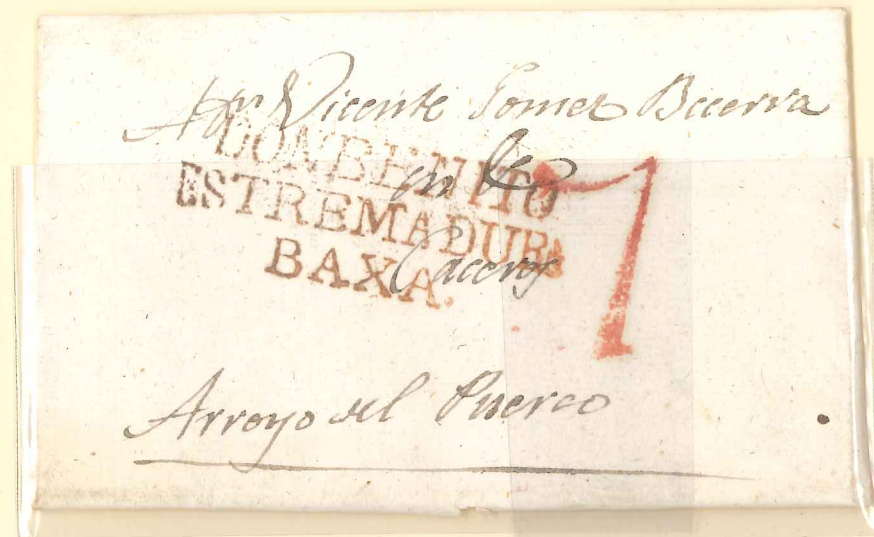 A Dn Vicente Gomez Becerra
DONBENITO
en
ESTREMADURA
BAXA.
Caceres
7
Arroyo del Puerco